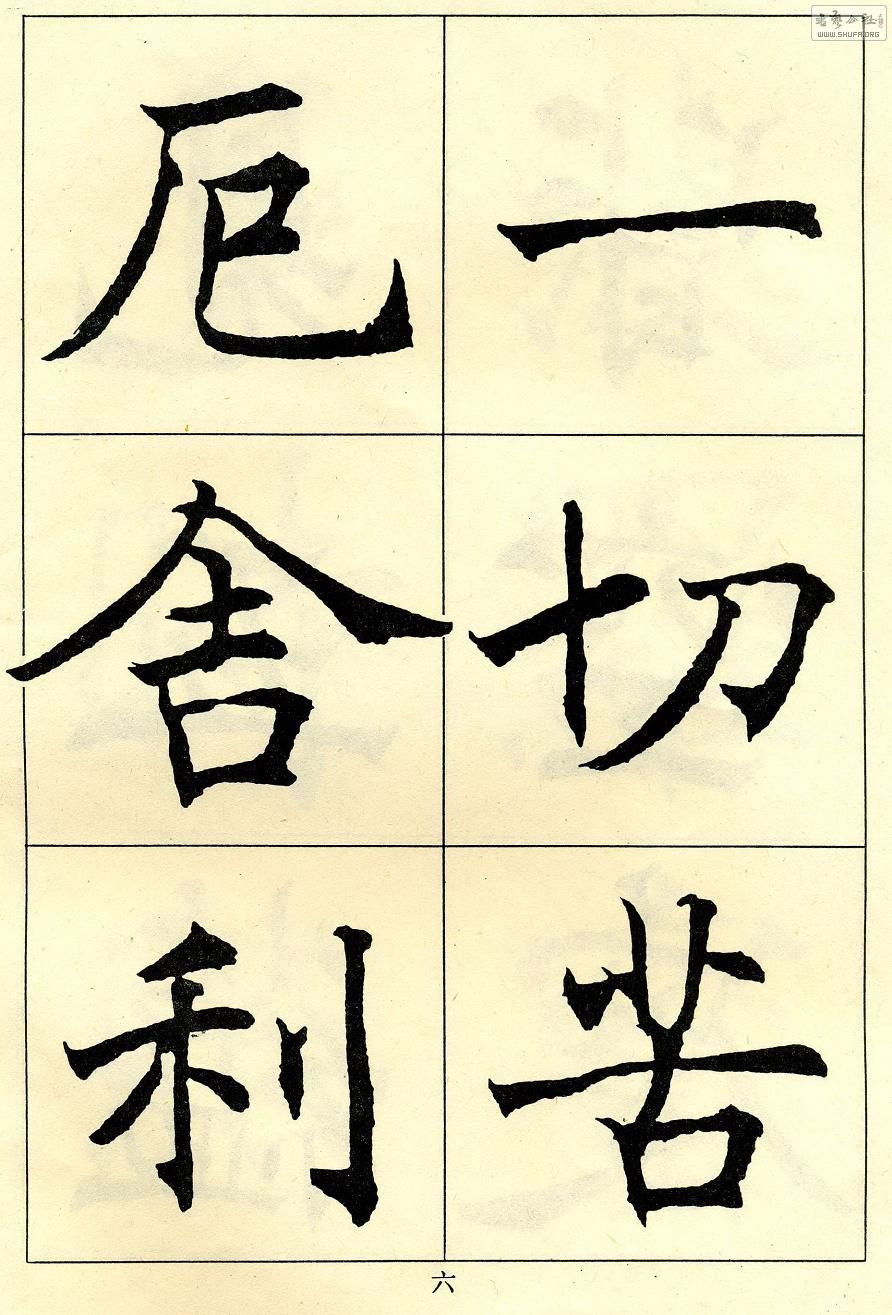 一切苦
厄舍利
六
书艺公社
WWW.SHUFA.ORG